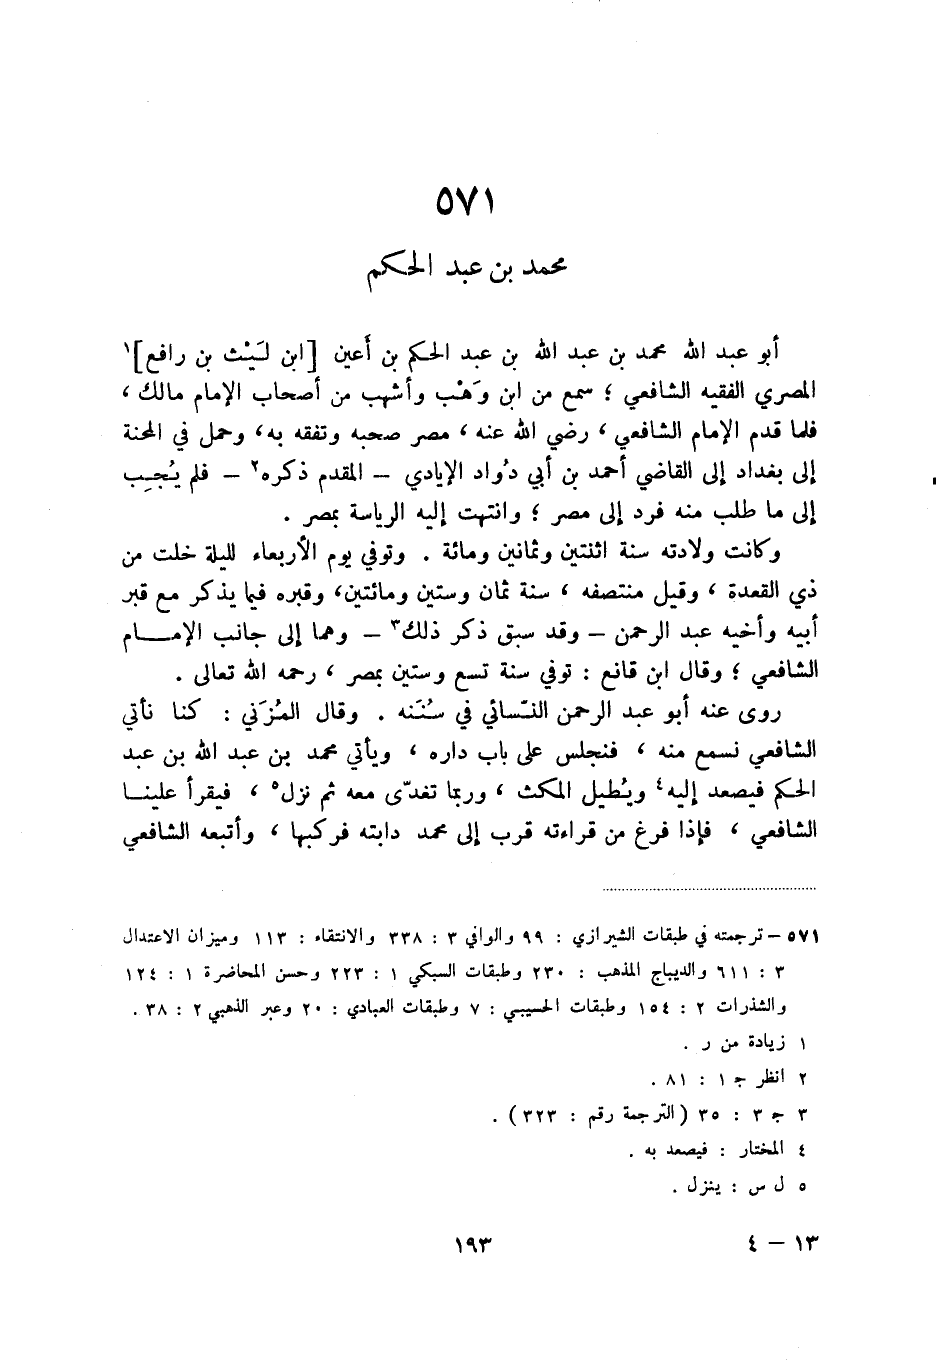 ٥٧١
محمد بن عبد الحكم
أبو عبد الله محمد بن عبد الله بن عبد الحكم بن أَعين [ابن لَيْث بن رافع]١
المصري الفقيه الشافعي ؛ سمع من ابن وَهْب وأشهب من أصحاب الإمام مالك ،
فلما قدم الإمام الشافعي ، رضي الله عنه ، مصر صحبه وتفقه به، وحمل في المحنة
إلى بغداد إلى القاضي أحمد بن أبي دُواد الإيادي – المقدم ذكره٢ – فلم يُجِب
إلى ما طلب منه فرد إلى مصر ؛ وانتهت إليه الرياسة بمصر .
وكانت ولادته سنة اثنتين وثمانين ومائة . وتوفي يوم الأربعاء لليلة خلت من
ذي القعدة ، وقيل منتصفه ، سنة ثمان وستين ومائتين، وقبره فيما يذكر مع قبر
أبيه وأخيه عبد الرحمن – وقد سبق ذكر ذلك٣ – وهما إلى جانب الإمـــام
الشافعي ؛ وقال ابن قانع : توفي سنة تسع وستين بمصر ، رحمه الله تعالى .
روى عنه أبو عبد الرحمن النَّسائي في سُنَنه . وقال المُزَني : كنا نأتي
الشافعي نسمع منه ، فنجلس على باب داره ، ويأتي محمد بن عبد الله بن عبد
الحكم فيصعد إليه٤ ويُطيل المكث ، وربما تغدّى معه ثم نزل٥ ، فيقرأ علينــا
الشافعي ، فإذا فرغ من قراءته قرب إلى محمد دابته فركبها ، وأتبعه الشافعي
٥٧١ – ترجمته في طبقات الشيرازي : ٩٩ والوافي ٣ : ٣٣٨ والانتقاء : ١١٣ وميزان الاعتدال
٣ : ٦١١ والديباج المذهب : ٢٣٠ وطبقات السبكي ١ : ٢٢٣ وحسن المحاضرة ١ : ١٢٤
والشذرات ٢ : ١٥٤ وطبقات الحسيني : ٧ وطبقات العبادي : ٢٠ وعبر الذهبي ٢ : ٣٨ .
١ زيادة من ر .
٢ انظر ج ١ : ٨١ .
٣ ج ٣ : ٣٥ (الترجمة رقم : ٣٢٣) .
٤ المختار : فيصعد به .
٥ ل س : ينزل .
١٣ – ٤
١٩٣